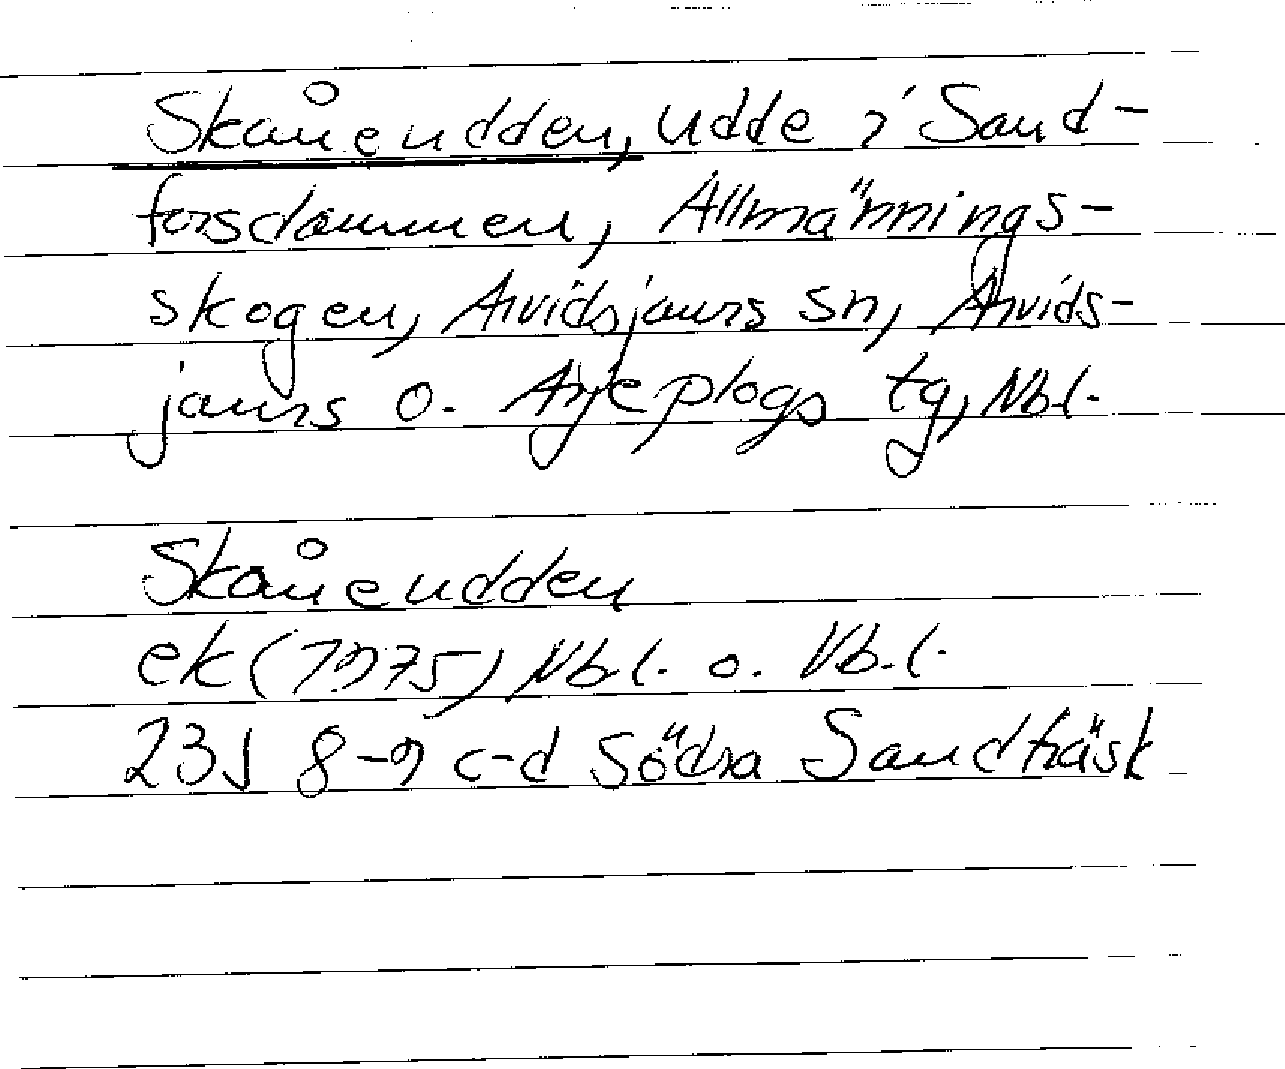 Skåneudden, udde i Sand-
forsdammen, Allmännings-
skogen, Arvidsjaurs sn, Arvids-
jaurs o. Arjeplogs tg, Nb.l.
Skåneudden
ek (1975) Nb.l. o. Vb.l.
23J 8-9 c-d Södra Sandträsk